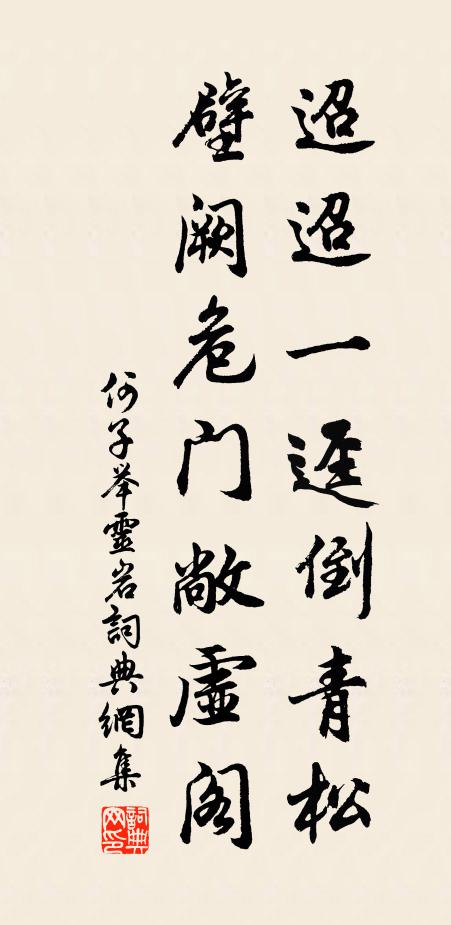 迢迢一逕倒青松
壁闕危門敞虛閣
何子举靈岩詞典網集
詞典网印